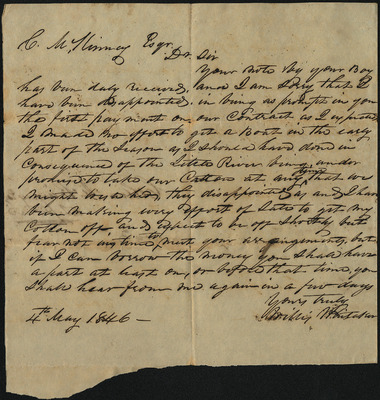 C. McKinney Esqr.
Dr. Sir
Your note by your Boy
has bin duly received, and I am Sory that I
have bin disappointed in being as prompt in you
the first payment on our Contract as I expected
I made no effort to get a Boat in the early
part of the Season as I should have done in
Consequence of the Little River being under
promise to take our Cotton at any time that we
might wish but, they disappointed us and I have
bin making every effort of late to get my
Cotton off and expect to be off Shortly but
fear not in time to meet your arrangements, but
if I can borrow the money you Shall have
a part at least on, or before that time, you
Shall hear from me again in a few days
Yours truly
Willis Whitaker
4th May 1846 —